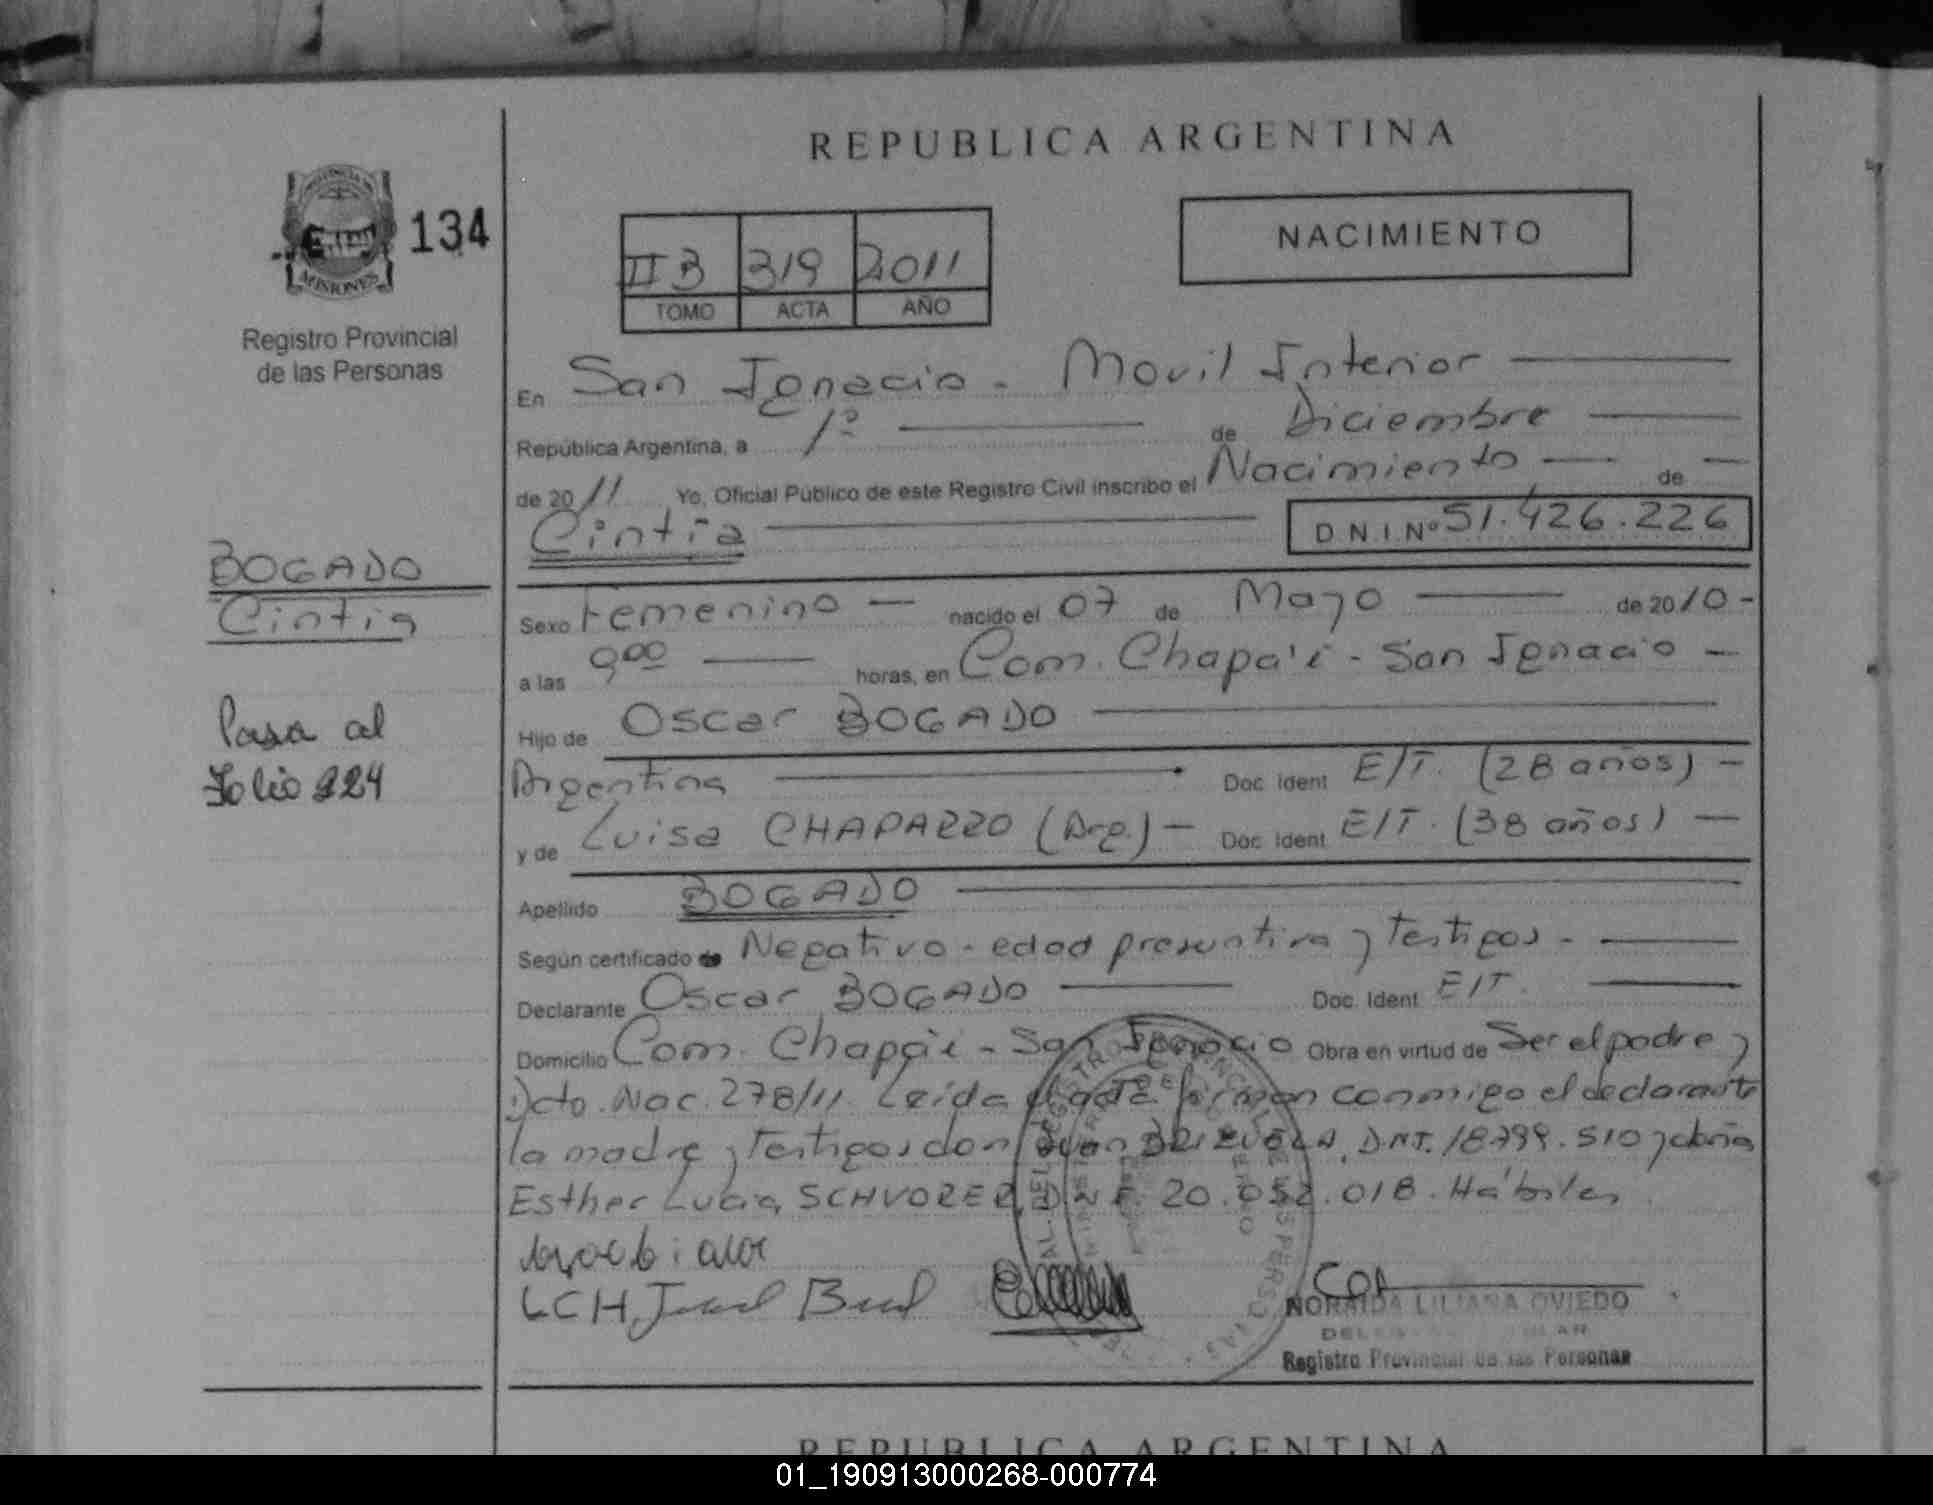 REPUBLICA ARGENTINA
134
MISIONES
Registro Provincial
de las Personas
NACIMIENTO
II B 319 2011
TOMO ACTA AÑO
En San Ignacio - Movil Interior
República Argentina, a 1º de Diciembre
de 2011 Yo, Oficial Público de este Registro Civil inscribo el Nacimiento de
Cintia D.N.I.Nº 51.426.226
BOGADO
Cintia
Sexo Femenino nacido el 07 de Mayo de 2010 -
a las 9:00 horas, en Com. Chapa'i - San Ignacio
Hijo de Oscar BOGADO
Pasa al
Folio 224
Argentina Doc. Ident E/T. (28 años)
y de Luisa CHAPARRO (Arg.) Doc. Ident E/T. (38 años)
Apellido BOGADO
Según certificado de Negativo - edad presuntiva y testigos -
Declarante Oscar BOGADO Doc. Ident E/T.
Domicilio Com. Chapa'i - San Ignacio Obra en virtud de Ser el padre y
Dcto. Nac. 278/11. Leída el acta firman conmigo el declarante
la madre y testigos don Juan BRIZUELA, DNI. 18.799.510 y doña
Esther Lucia SCHVORER, DNI. 20.052.018. Hábiles
LCH
NORAIDA LILIANA OVIEDO
Registro Provincial de las Personas
REPUBLICA ARGENTINA
01_190913000268-000774